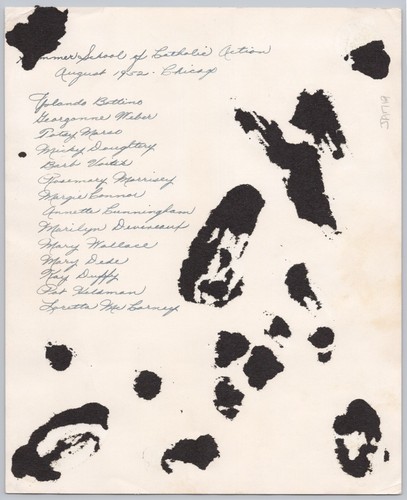 Summer School of Catholic Action
August 1952. Chicago
Yolando Bottino
Georganne Weber
Patsy Marso
Micky Daugherty
Barb Voitek
Rosemary Morrisey
Margie Connor
Annette Cunningham
Marilyn Deveneaux
Mary Wallace
Mary Dede
Kay Duffy
Pat Veldman
Loretta McCarney